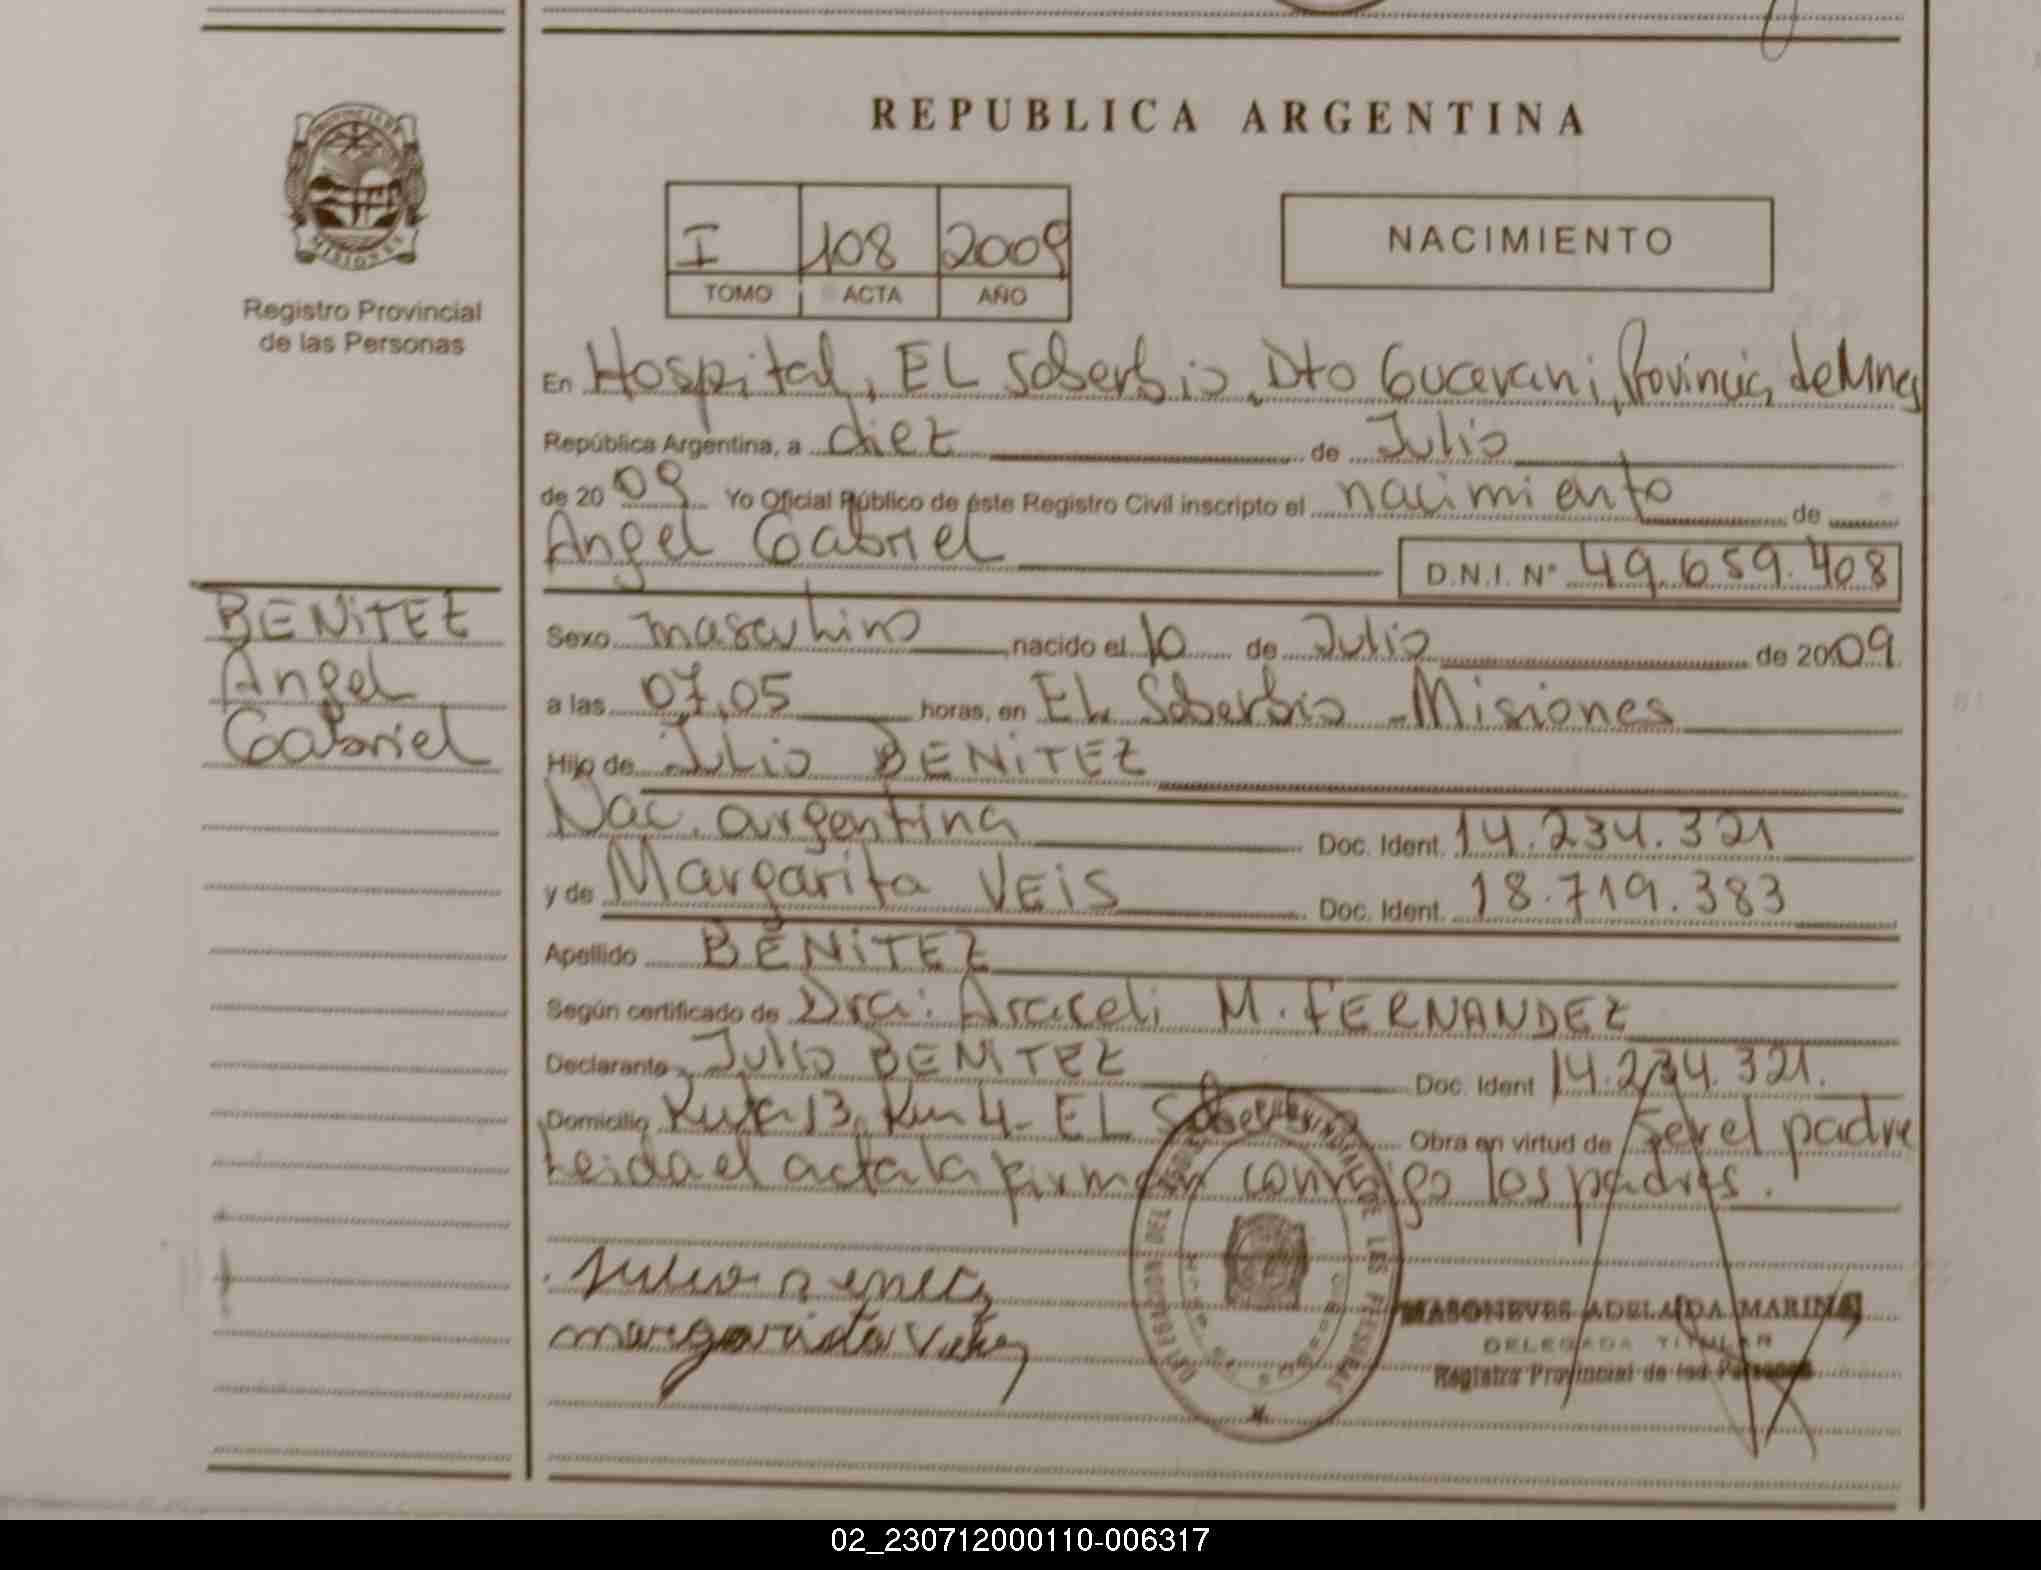 REPUBLICA ARGENTINA
PROVINCIA DE
MISIONES
Registro Provincial
de las Personas
I 108 2009
TOMO ACTA AÑO
NACIMIENTO
En Hospital, EL Soberbio, Dto Gucarani, Provincia de Mnes
República Argentina, a diez de Julio
de 2009 Yo Oficial Público de éste Registro Civil inscripto el nacimiento de
Angel Gabriel D.N.I. N° 49.659.408
BENiTEZ
Angel
Gabriel
Sexo masculino nacido el 10 de Julio de 2009
a las 07,05 horas, en EL Soberbio - Misiones
Hijo de Julio BENiTEZ
Nac. argentina Doc. Ident. 14.234.321
y de Margarita VEiS Doc. Ident. 18.719.383
Apellido BENiTEZ
Según certificado de Dra: Araceli M. FERNANDEZ
Declarante Julio BENITEZ Doc. Ident 14.234.321.
Domicilio Ruta 13, Km 4 - EL Soberbio Obra en virtud de Ser el padre
Leida el acta la firman conmigo los padres.
margarita
MASONEVES ADELAIDA MARINA
DELEGADA TITULAR
Registro Provincial de las Personas
02_230712000110-006317